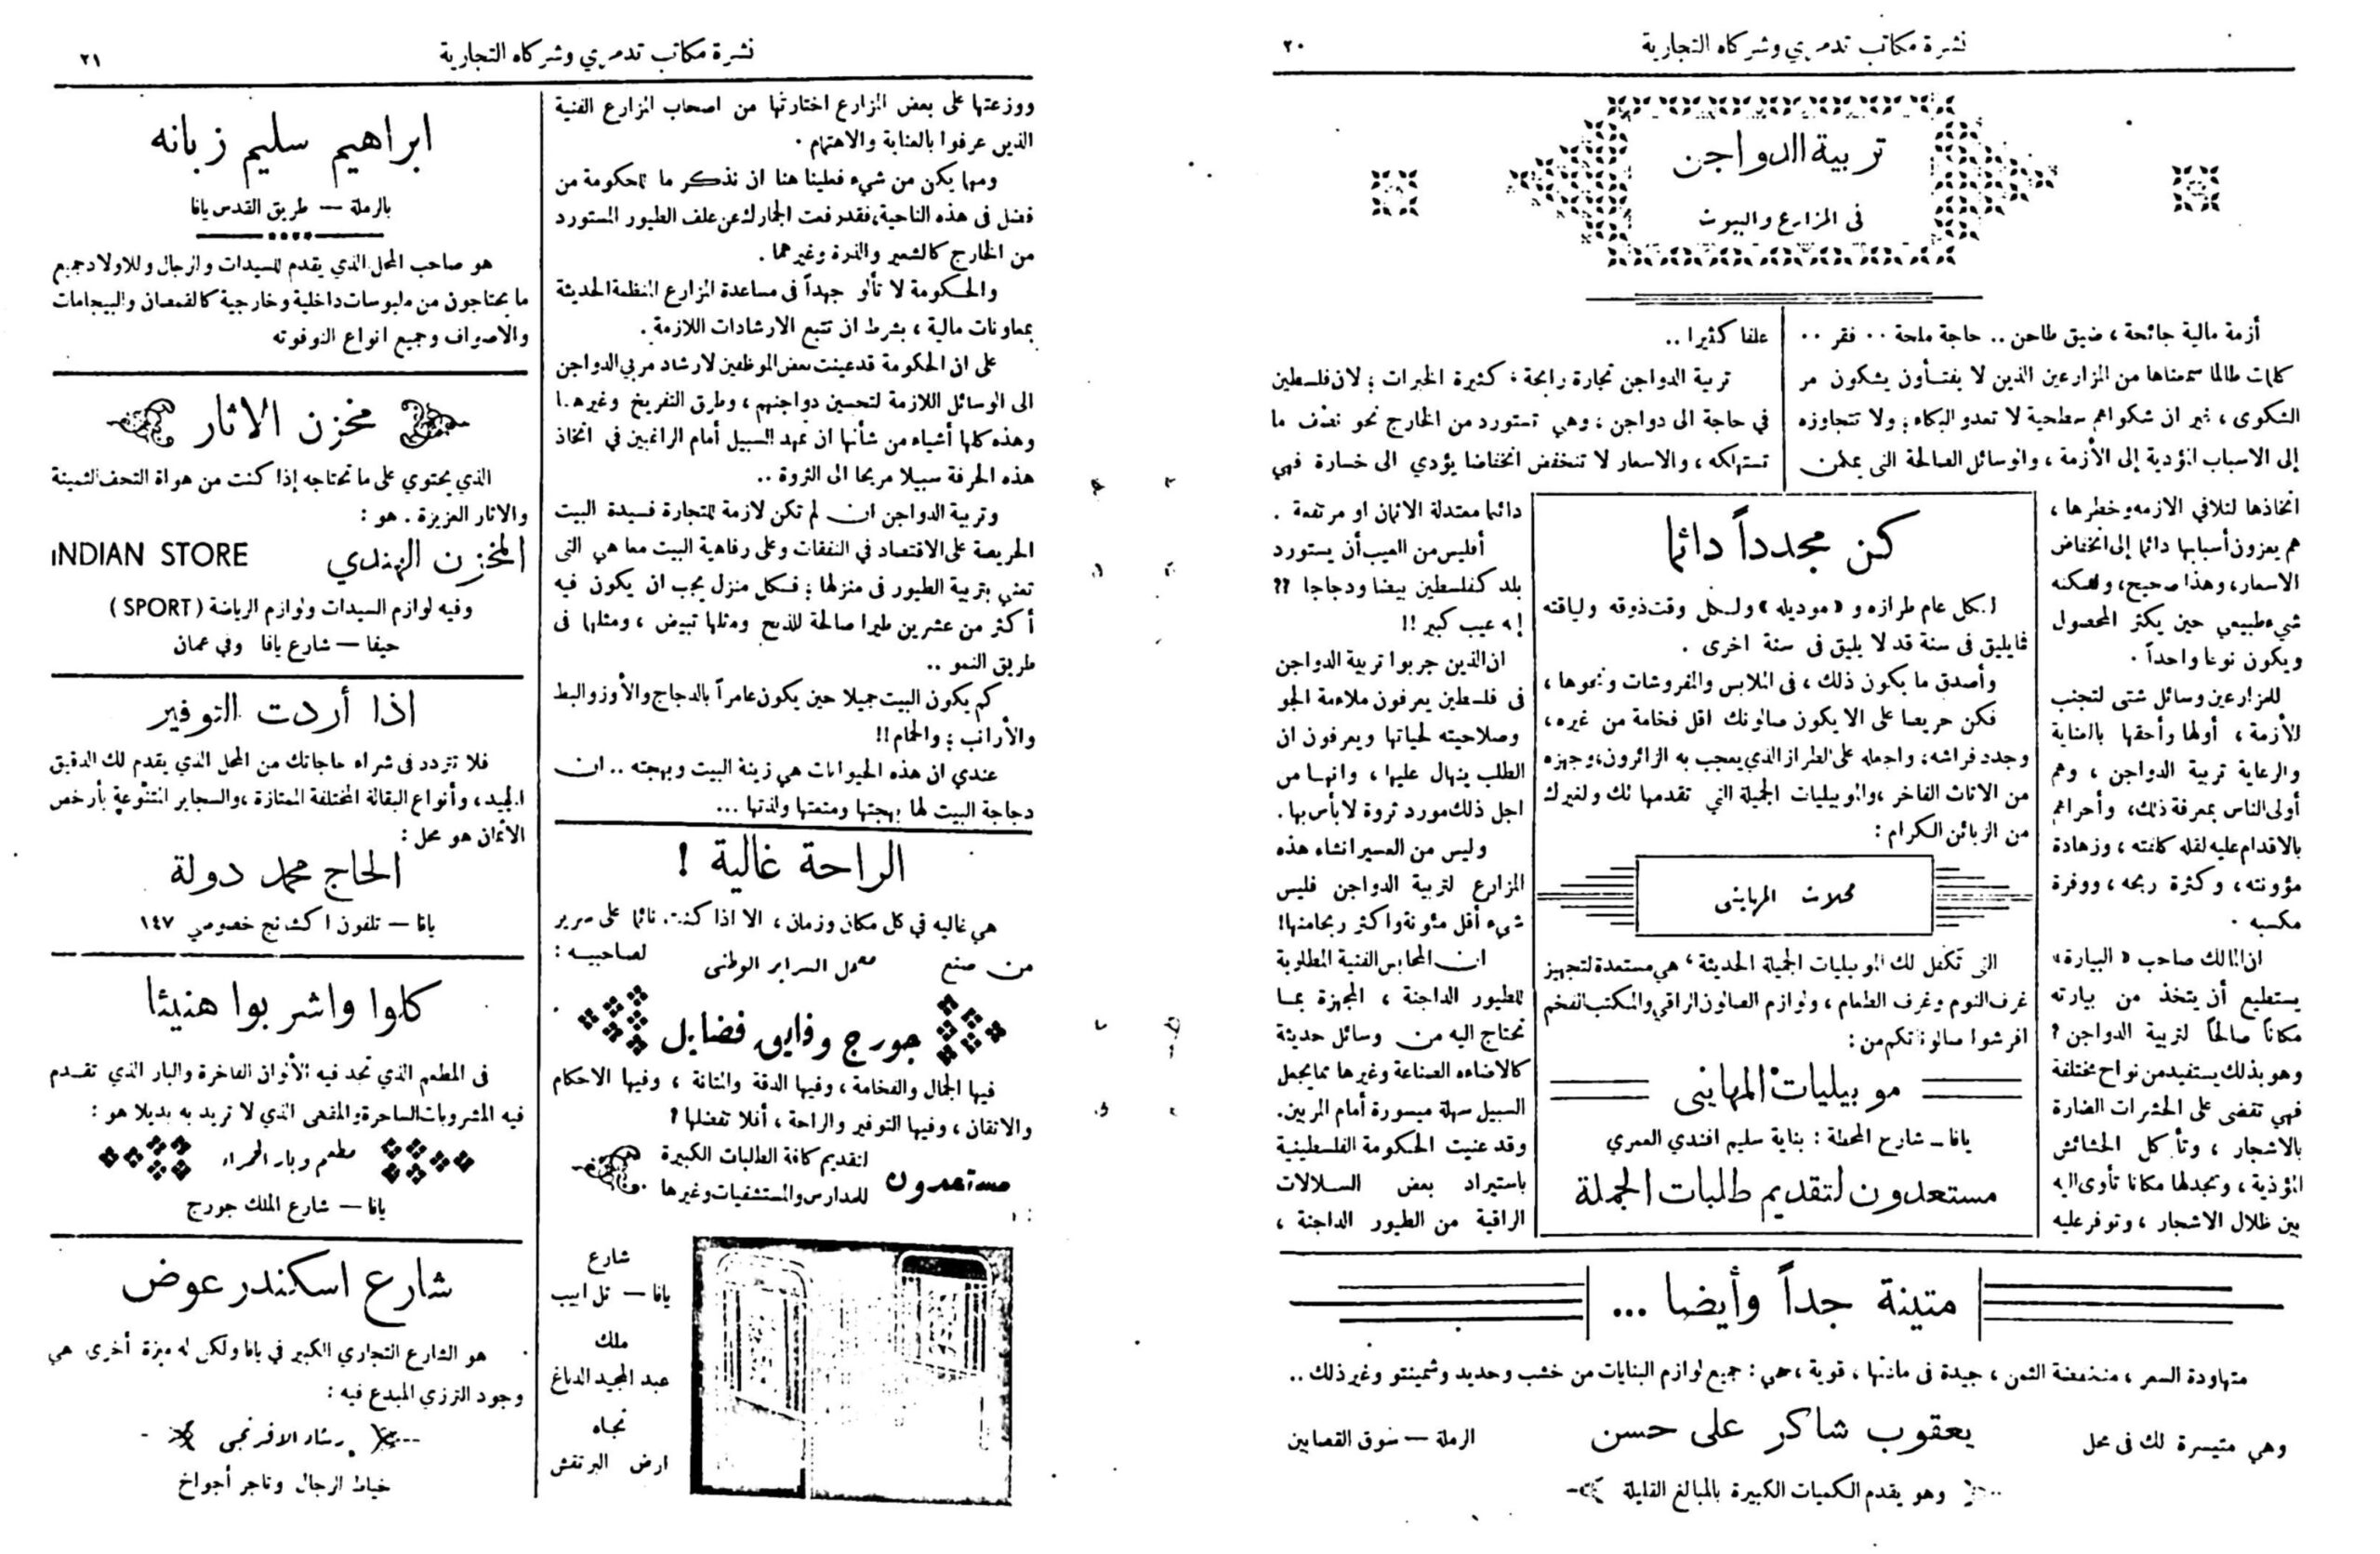 نشرة مكاتب تدمري وشركاه التجارية
٢٠
تربية الدواجن
فى المزارع والبيوت
أزمة مالية جائحة ، ضيق طاحن .. حاجة ملحة ٠٠ فقر ٠٠
كلمات طالما سمعناها من المزارعين الذين لا يفتأون يشكون مر
الشكوى ، غير ان شكواهم سطحية لا تعدو البكاء ؛ ولا تتجاوزه
إلى الاسباب المؤدية إلى الأزمة ، والوسائل الصالحة التى يمكن
اتخاذها لتلافي الازمه وخطرها ،
هم يعزون أسبابها دائما إلى انخفاض
الاسعار، وهذا صحيح، ولكنه
شيء طبيعي حين يكثر المحصول
ويكون نوعا واحداً ٠
للمزارعين وسائل شتى لتجنب
الأزمة ، أولها وأحقها بالعناية
والرعاية تربية الدواجن ، وهم
أولى الناس بمعرفة ذلك، وأحراهم
بالاقدام عليه لقله كلفته ، وزهادة
مؤونته ، وكثرة ربحه ، ووفرة
مكسبه ٠
ان المالك صاحب « البيارة »
يستطيع أن يتخذ من بيارته
مكاناً صالحاً لتربية الدواجن ؟
وهو بذلك يستفيد من نواح مختلفة
فهي تقضى على الحشرات الضارة
بالاشجار ، وتأكل الحشائش
المؤذية ، وتجد لها مكانا تأوى اليه
بين ظلال الاشجار ، وتوفر عليه
علفا كثيرا ..
تربية الدواجن تجارة رابحة ؛ كثيرة الخيرات ؛ لان فلسطين
في حاجة الى دواجن ، وهي تستورد من الخارج نحو نصف ما
تستهلكه ، والاسعار لا تنخفض انخفاضا يؤدي الى خسارة فهي
دائما معتدلة الاثمان او مرتفعة .
أفليس من العيب أن يستورد
بلد كفلسطين بيضا ودجاجا ؟؟
إنه عيب كبير !!
ان الذين جربوا تربية الدواجن
فى فلسطين يعرفون ملاءمة الجو
وصلاحيته لحياتها ويعرفون ان
الطلب ينهال عليها ، وانها من
اجل ذلك مورد ثروة لا بأس بها.
وليس من العسير انشاء هذه
المزارع لتربية الدواجن فليس
شيء أقل مئونة واكثر ربحا منها!
ان المحابس الفنية المطلوبة
للطيور الداجنة ، المجهزة بما
تحتاج اليه من وسائل حديثة
كالاضاءه الصناعة وغيرها مما يجعل
السبيل سهلة ميسورة أمام المربين.
وقد عنيت الحكومة الفلسطينية
باستيراد بعض السلالات
الراقية من الطيور الداجنة ،
كن مجدداً دائما
لكل عام طرازه و « موديله » ولكل وقت ذوقه ولياقته
فما يليق فى سنة قد لا يليق فى سنة اخرى .
وأصدق ما يكون ذلك ، فى الملابس والمفروشات ونحوها ،
فكن حريصا على الا يكون صالونك اقل فخامة من غيره ،
وجدد فراشه ؛ واجعله على الطراز الذي يعجب به الزائرون ، وجهزه
من الاثاث الفاخر ، والموبيليات الجميلة التي تقدمها لك ولغيرك
من الزبائن الكرام :
محلات المهاينى
التى تكفل لك الموبيليات الجميلة الحديثة ، هي مستعدة لتجهيز
غرف النوم وغرف الطعام ، ولوازم الصالون الراقي والمكتب الفخم
افرشوا صالوناتكم من :
موبيليات المهاينى
يافا ــ شارع المحطة : بناية سليم افندي العمري
مستعدون لتقديم طلبات الجملة
متينة جداً وأيضا ...
متهاودة السعر ، منخفضة الثمن ، جيدة فى مادتها ، قوية ، هي : جميع لوازم البنايات من خشب وحديد وشمينتو وغير ذلك ..
وهي متيسرة لك فى محل
يعقوب شاكر على حسن
الرملة — سوق القصابين
وهو يقدم الكميات الكبيرة بالمبالغ القليلة
نشرة مكاتب تدمري وشركاه التجارية
٢١
ووزعتها على بعض المزارع اختارتها من اصحاب المزارع الفنية
الذين عرفوا بالعناية والاهتمام ٠
ومهما يكن من شيء فعلينا هنا ان نذكر ما للحكومة من
فضل فى هذه الناحية، فقد رفعت الجمارك عن علف الطيور المستورد
من الخارج كالشعير والذرة وغيرهما .
والحكومة لا تألو جهداً فى مساعدة المزارع المنظمة الحديثة
بمعاونات مالية ، بشرط ان تتبع الارشادات اللازمة .
على ان الحكومة قد عينت بعض الموظفين لارشاد مربي الدواجن
الى الوسائل اللازمة لتحسين دواجنهم ، وطرق التفريخ وغيرها
وهذه كلها أشياء من شأنها ان تمهد السبيل أمام الراغبين في اتخاذ
هذه الحرفة سبيلا مريحا الى الثروة ..
وتربية الدواجن ان لم تكن لازمة للتجارة فسيدة البيت
الحريصة على الاقتصاد في النفقات وعلى رفاهية البيت معا هي التى
تعني بتربية الطيور فى منزلها ؛ فكل منزل يجب ان يكون فيه
أكثر من عشرين طيرا صالحة للذبح ومثلها تبيض ، ومثلها فى
طريق النمو ..
كم يكون البيت جميلا حين يكون عامراً بالدجاج والأوز والبط
والأرانب ؛ والحمام !!
عندي ان هذه الحيوانات هي زينة البيت وبهجته .. ان
دجاجة البيت لها بهجتها ومتعتها ولذتها ...
الراحة غالية !
هي غاليه في كل مكان وزمان ، الا اذا كنت نائما على سرير
من صنع
معمل السراير الوطنى
لصاحبيه :
جورج وفايق فضايل
فيها الجمال والفخامة ، وفيها الدقة والمتانة ، وفيها الاحكام
والاتقان ، وفيها التوفير والراحة ، أفلا تفضلها ؟
مستعدون
لتقديم كافة الطلبات الكبيرة
للمدارس والمستشفيات وغيرها
شارع
يافا — تل ابيب
ملك
عبد المجيد الدباغ
تجاه
ارض البرتقش
ابراهيم سليم زبانه
بالرملة — طريق القدس يافا
هو صاحب المحل الذي يقدم للسيدات والرجال وللاولاد جميع
ما يحتاجون من ملبوسات داخلية وخارجية كالقمصان والبيجامات
والاصواف وجميع انواع النوفوته
مخزن الاثار
الذي يحتوي على ما تحتاجه إذا كنت من هواة التحف الثمينة
والاثار العزيزة . هو :
المخزن الهندي INDIAN STORE
وفيه لوازم السيدات ولوازم الرياضة ( SPORT )
حيفا — شارع يافا وفي عمان
اذا أردت التوفير
فلا تتردد فى شراء حاجاتك من المحل الذي يقدم لك الدقيق
الجيد ، وأنواع البقالة المختلفة الممتازة ، والسجاير المتنوعة بأرخص
الأثمان هو محل :
الحاج محمد دولة
يافا — تلفون اكشانج خصوصي ١٤٧
كلوا واشربوا هنيئا
فى المطعم الذي تجد فيه الألوان الفاخرة والبار الذي تقدم
فيه المشروبات الساحرة والمقهى الذي لا تريد به بديلا هو :
مطعم وبار الحمراء
يافا — شارع الملك جورج
شارع اسكندر عوض
هو الشارع التجاري الكبير في يافا ولكن له ميزة أخرى هي
وجود الترزي المبدع فيه :
رشاد الافرنجي
خياط الرجال وتاجر أجواخ